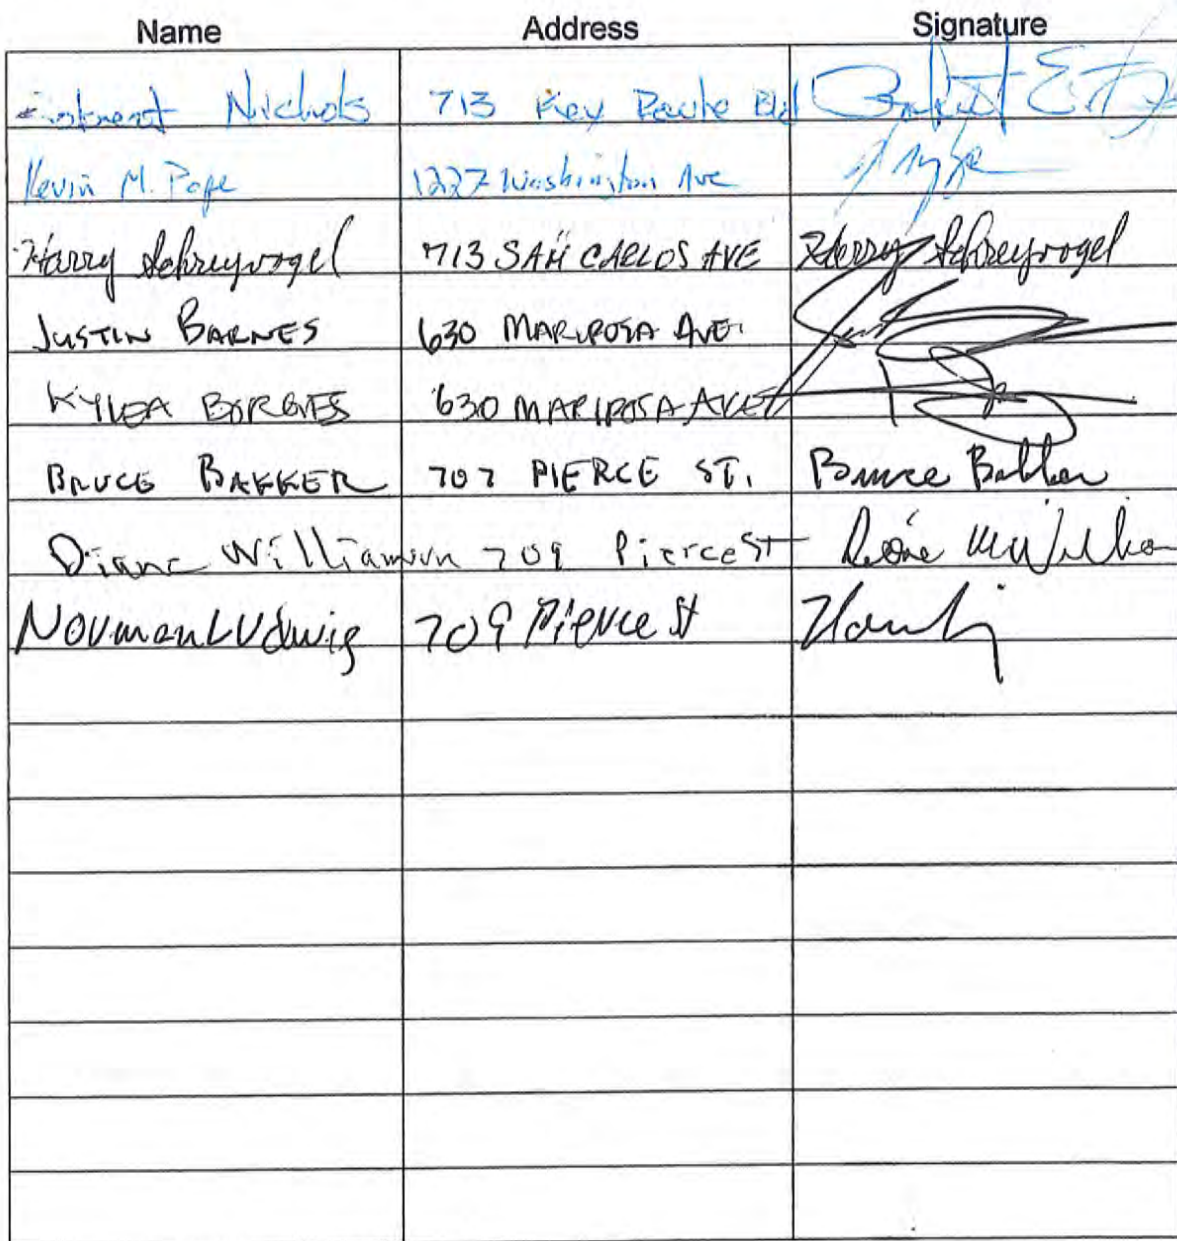 Name Address Signature
Nichols 713 Key Route Blvd
Kevin M. Pope 1227 Washington Ave
Harry Schreyvogel 713 SAN CARLOS AVE Harry Schreyvogel
JUSTIN BARNES 630 MARIPOSA AVE.
630 MARIPOSA AVE
BRUCE BAKKER 707 PIERCE ST. Bruce Bakker
Diane Williamson 709 Pierce St
Norman Ludwig 709 Pierce St